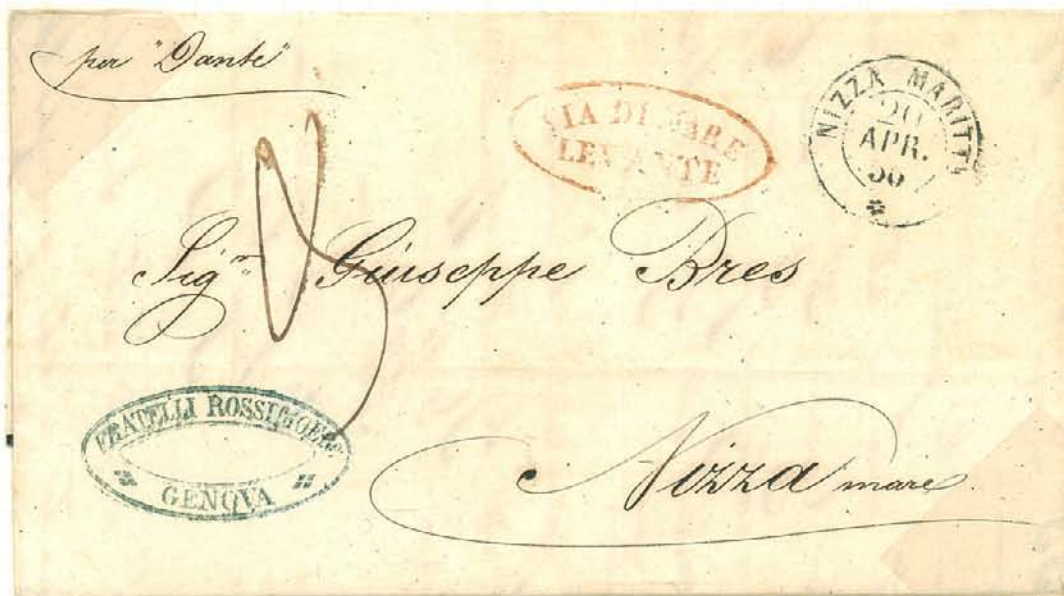 per "Dante"
VIA DI MARE
LEVANTE
NIZZA MARITT.
20
APR.
Sig.r Giuseppe Bres
FRATELLI
GENOVA
Nizza mare